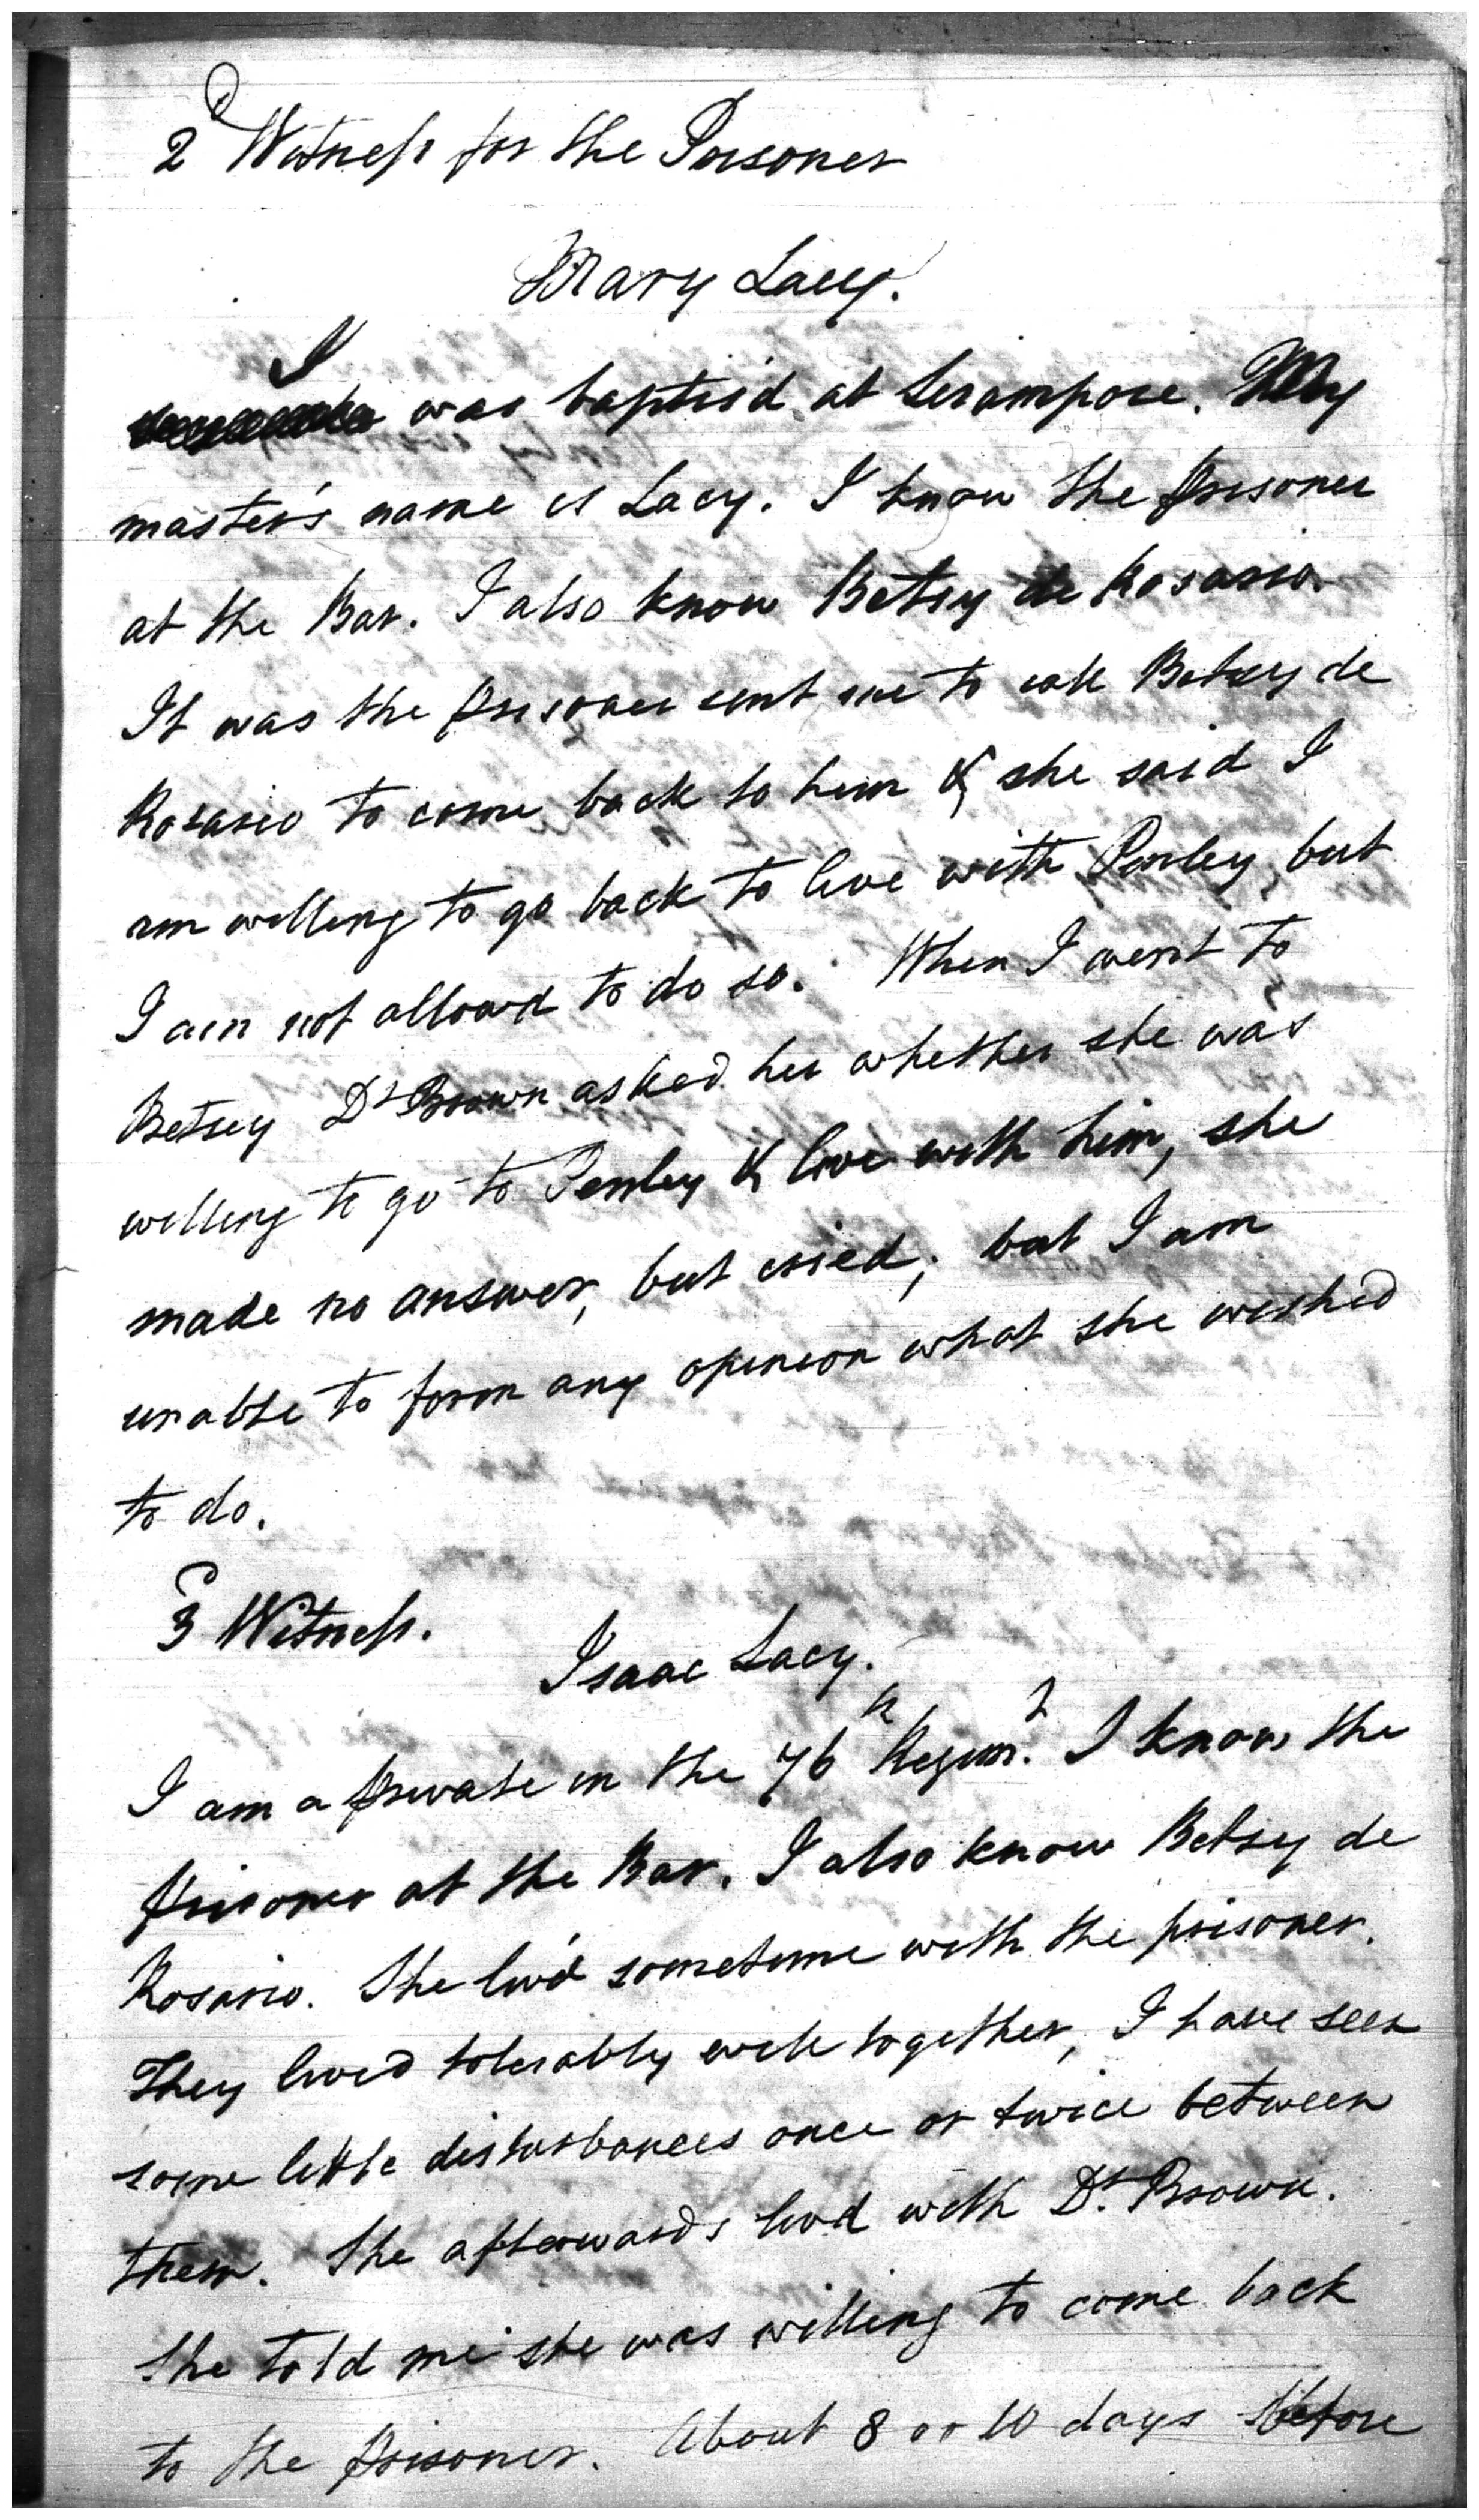 2d Witness for the Prisoner
Mary Lacy.
I
was baptis'd at Serampore. My
master's name is Lacy. I know the prisoner
at the Bar. I also know Betsey de Rosario.
It was the prisoner sent me to ask Betsey de
Rosario to come back to him & she said I
am willing to go back to live with Penley but
I am not allowd to do so. When I went to
Betsey Dr Brown asked her whether she was
willing to go to Penley & live with him, she
made no answer, but cried; but I am
unable to form any opinion what she wished
to do.
3d Witness.
Isaac Lacy.
I am a private in the 76h Regimt. I know the
prisoner at the Bar. I also know Betsey de
Rosario. She liv'd sometime with the prisoner.
They lived tolerably well together, I have seen
some little disturbances once or twice between
them. She afterwards livd with Dr. Brown.
She told me she was willing to come back
to the prisoner. About 8 or 10 days before